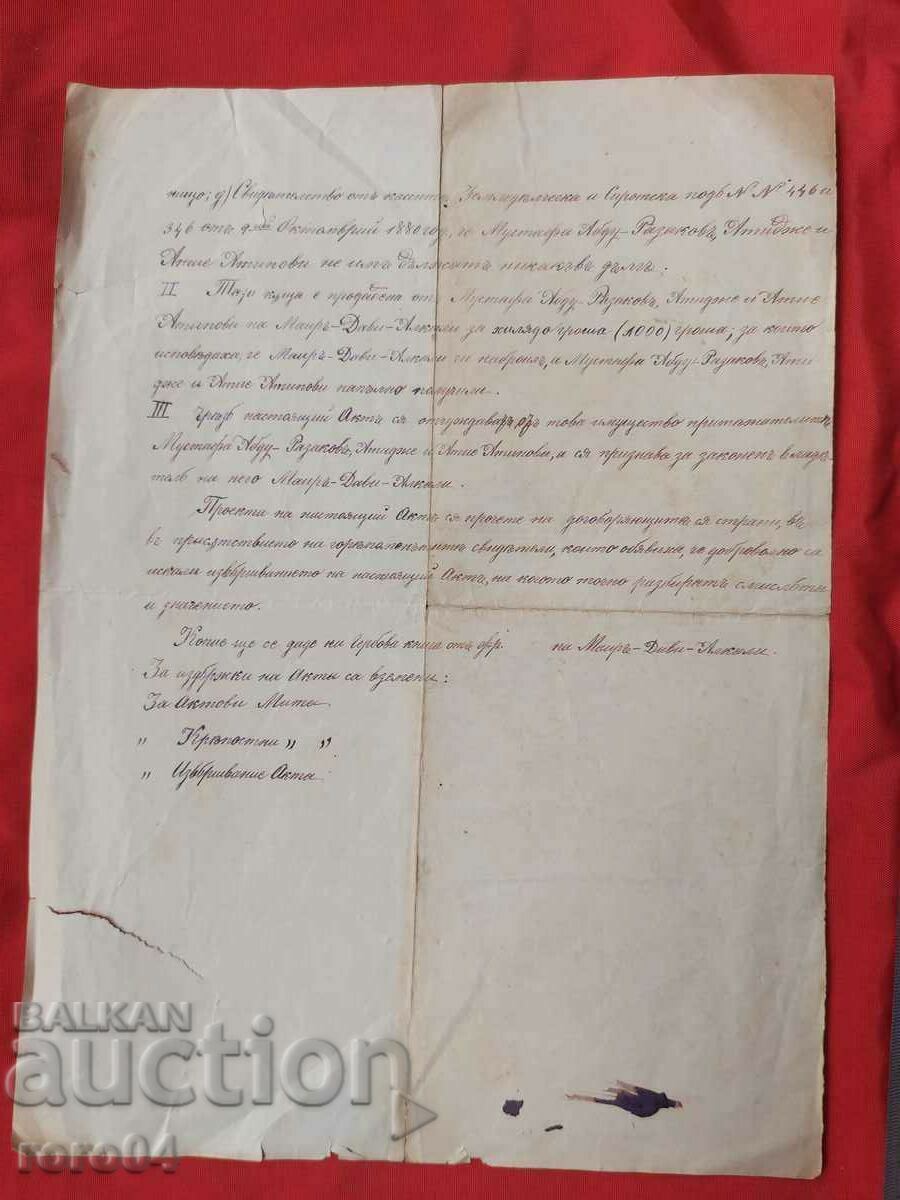 ницо; д) Свидѣтелство отъ касить Земледѣлческа и Сиротска подъ N N: 446 и
346 отъ Октомврий 1880 год, че Мустафа Абду-Разаковъ, Атидже и
Атие Атипови не имъ дължатъ никакъв дългъ.
II Тази къща е продадена отъ Мустафа Абду-Разаковъ, Атидже и Атие
Атипови на Маиръ-Дави-Алколи за хилядо гроша (1000) гроша; за които
исповѣдаха, че Маиръ-Дави-Алколи ги наброилъ, и Мустафа Абду-Разаковъ, Ати
дже и Атие Атипови напълно получили.
III Чрезъ настоящий Актъ ся отчуждаватъ отъ това имущество притежателитѣ
Мустафа Абду-Разаковъ, Атидже и Атие Атипови, и ся признава за законенъ владѣ
тель на него Маиръ-Дави-Алколи.
Проекта на настоящий Актъ ся прочете на договорящитѣ ся страни, въ
въ присѫтствието на горѣпоменѫтитѣ свидѣтели, които обявиха, че доброволно са
искали извършванието на настоящий Актъ, на когото точно разбиратъ смисълътъ
и значението.
Копие ще се даде на Гербова книга отъ фр. на Маиръ-Дави-Алколи.
За издръжки на Акты са вземени:
За Актови Мита
„ Крѣпостни „ „
„ Извършвание Акта
BALKAN
auction
roro04